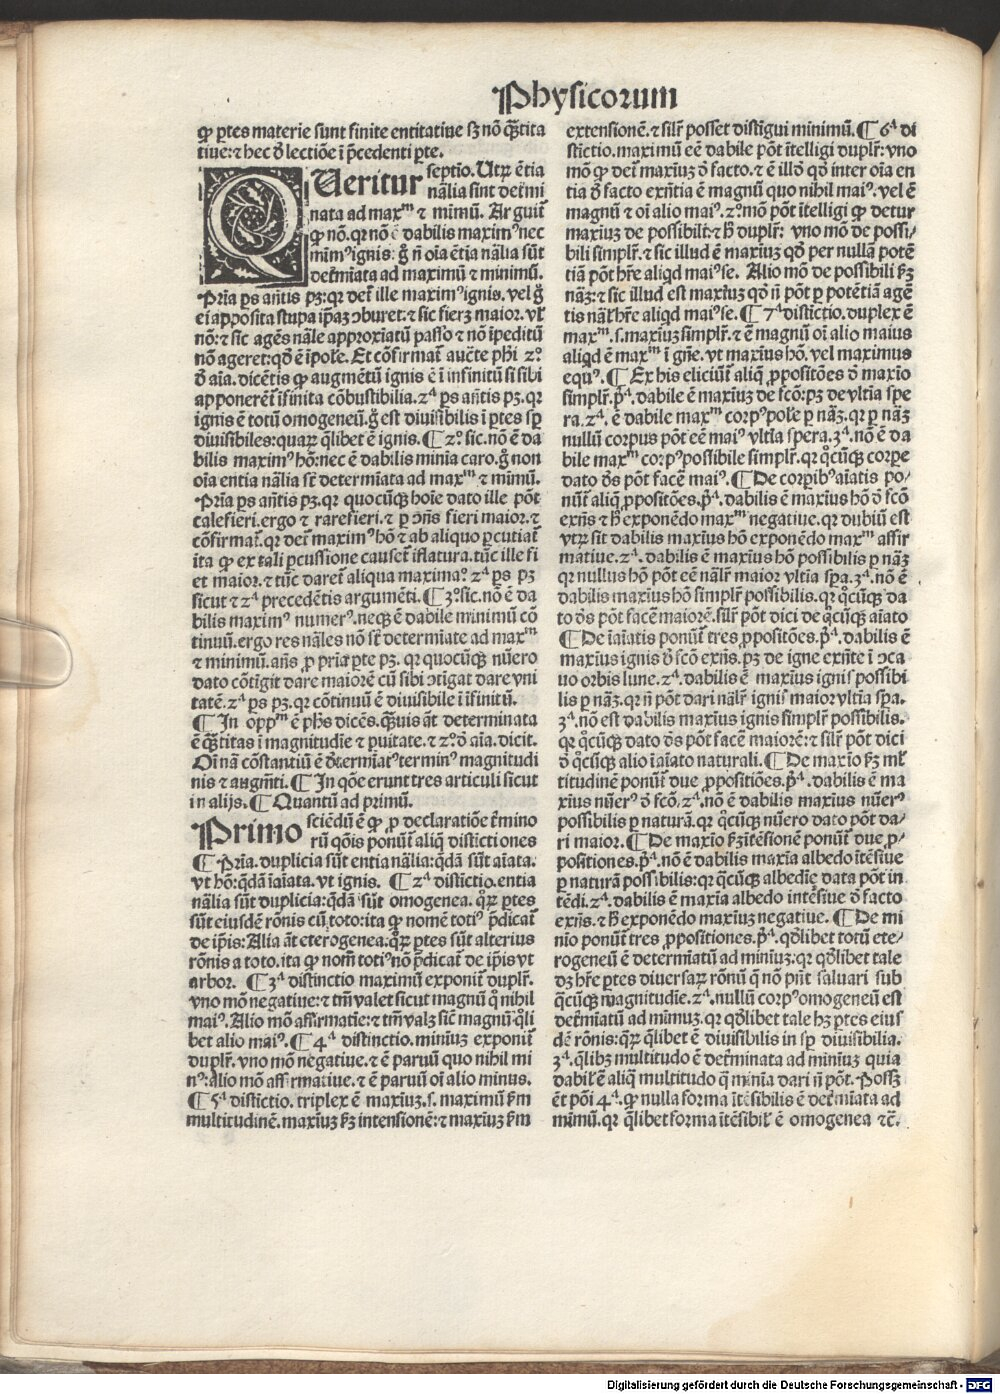 Physicorum
ꝙ ptes materie sunt finite entitatiue sꝫ nõ q̃tita
tiue: ⁊ hec ð lectiõe ĩ p̃cedenti pte.
QUeritur septio. Utꝝ ẽtia
nãlia sint det̃mi
nata ad maxᵐ ⁊ mimũ. Arguit̃
ꝙ nõ. qꝛ nõ ẽ dabilis maximꝰ nec
mimꝰ ignis: g̊ ñ oĩa ẽtia nãlia sũt
det̃mĩata ad maximũ ⁊ minimũ.
Prĩa ps añtis pꝫ: qꝛ det̃ ille maximꝰ ignis. vel g̊
ei apposita stupa ip̃aꝫ ↄburet: ⁊ sic fieret maior. vl̃
nõ: ⁊ sic agẽs nãle approxĩatũ passo ⁊ nõ ĩpeditũ
nõ ageret: qð ẽ ĩpole. Et cõfirmat̃ aucte phi 2ꝰ
ð aĩa. dicẽtis ꝙ augmẽtũ ignis ẽ ĩ infinitũ si sibi
apponerẽt̃ ĩfinita cõbustibilia. 2ᵃ ps añtis pꝫ. qꝛ
ignis ẽ totũ omogeneũ. g̊ est diuisibilis ĩ ptes sp̃
diuisibiles: quaꝝ q̃libet ẽ ignis. ¶ 2ꝰ sic. nõ ẽ da
bilis maximꝰ hõ: nec ẽ dabilis minĩa caro. g̊ non
oĩa entia nãlia st̃ determĩata ad maxᵐ ⁊ mimũ.
Prĩa ps añtis pꝫ. qꝛ quocũqꝫ hoĩe dato ille põt
calefieri. ergo ⁊ rarefieri. ⁊ p ↄñs fieri maior. ⁊
cõfirmat̃. qꝛ det̃ maximꝰ hõ ⁊ ab aliquo pcutiat̃
ita ꝙ ex tali pcussione causet̃ ĩflatura. tũc ille fi
et maior. ⁊ tũc daret̃ aliqua maximaꝰ 2ᵃ ps pꝫ
sicut ⁊ 2ᵃ precedẽtis argumẽti. ¶ 3ꝰ sic. nõ ẽ da
bilis maximꝰ numerꝰ. neqꝫ ẽ dabile minimũ cõ
tinuũ. ergo res nãles nõ st̃ determĩate ad maxᵐ
⁊ minimũ. añs ꝓ prĩa pte pꝫ. qꝛ quocũqꝫ nũero
dato cõtĩgit dare maiorẽ cũ sibi ↄtigat dare vni
tatẽ. 2ᵃ ps pꝫ. qꝛ cõtinuũ ẽ diuisibile ĩ ĩfinitũ.
¶ In oppᵐ ẽ phs dicẽs. q̃uis aũt determinata
ẽ q̃titas ĩ magnitudĩe ⁊ puitate. ⁊ 2ꝰ ð aĩa. dicit.
Oĩ nã cõstantiũ ẽ det̃mĩatꝰ terminꝰ magnitudi
nis ⁊ augm̃ti. ¶ In qõe erunt tres articuli sicut
in alijs. ¶ Quantũ ad primũ.
Primo sciẽdũ ẽ ꝙ ꝓ declaratiõe t̃mino
rũ qõis ponũt̃ aliq̃ distĩctiones
¶ Prĩa. duplicia sũt entia nãlia: q̃dã sũt aĩata.
vt hõ: q̃dã ĩaĩata. vt ignis. ¶ 2ᵃ distĩctio. entia
nãlia sũt duplicia: q̃dã sũt omogenea. qͦꝝ ptes
sũt eiusdẽ rõnis cũ toto: ita ꝙ nomẽ totiꝰ p̃dicat̃
de ip̃is: Alia aũt eterogenea. qͦꝝ ptes sũt alterius
rõnis a toto. ita ꝙ nom̃ totiꝰ nõ p̃dicat̃ de ip̃is vt
arbor. ¶ 3ᵃ distinctio maximũ exponit̃ duplr̃.
vno mõ negatiue: ⁊ tm̃ valet sicut magnũ qͦ nihil
maiꝰ. Alio mõ affirmatiue: ⁊ tm̃ valꝫ sic̃ magnũ q̃li
bet alio maiꝰ. ¶ 4ᵃ distinctio. minĩuꝫ exponit̃
duplr̃. vno mõ negatiue. ⁊ ẽ paruũ quo nihil mi
nꝰ: alio mõ affirmatiue. ⁊ ẽ paruũ oĩ alio minus.
¶ 5ᵃ distĩctio. triplex ẽ maxĩuꝫ. s. maximũ ẜm
multitudinẽ. maxĩuꝫ ẜꝫ intensionẽ: ⁊ maxĩuꝫ ẜm
extensionẽ. ⁊ silr̃ posset distĩgui minimũ. ¶ 6ᵃ di
stĩctio. maximũ eẽ dabile põt ĩtelligi duplr̃: vno
mõ ꝙ det̃ maxĩuꝫ ð facto. ⁊ ẽ illð qð inter oĩa en
tia ð facto exñtia ẽ magnũ quo nihil maiꝰ. vel ẽ
magnũ ⁊ oĩ alio maiꝰ. 2ꝰ mõ põt ĩtelligi ꝙ detur
maxĩuꝫ de possibili: ⁊ h̃ duplr̃: vno mõ de possi⸗
bili simplr̃. ⁊ sic illud ẽ maxĩuꝫ qð per nullã potẽ
tiã põt hr̃e aliqd maiꝰ se. Alio mõ de possibili ẜꝫ
nãꝫ: ⁊ sic illud est maxĩuꝫ qð ñ põt p potẽtiã agẽ
tis nãl̃ hr̃e aliqd maiꝰ se. ¶ 7ᵃ distĩctio. duplex ẽ
maxᵐ. s. maxĩuꝫ simplr̃. ⁊ ẽ magnũ oĩ alio maius
aliqd ẽ maxᵐ ĩ gñe. vt maxĩus hõ. vel maximus
equꝰ. ¶ Ex his eliciũt̃ aliq̃ ꝓpositões ð maxĩo
simplr̃. pᵃ. dabile ẽ maxĩuꝫ de fcõ: pꝫ de vltĩa spe
ra. 2ᵃ. ẽ dabile maxᵐ corpꝰ pole p nãꝫ. qꝛ p nãꝫ
nullũ corpus põt eẽ maiꝰ vltĩa spera. 3ᵃ. nõ ẽ da
bile maxᵐ corpꝰ possibile simplr̃. qꝛ qͦcũqꝫ corpe
dato ðs põt facẽ maiꝰ. ¶ De corpibꝰ aĩatis po⸗
nũt̃ aliq̃ ꝓpositões. pᵃ. dabilis ẽ maxĩus hõ ð fcõ
exñs ⁊ h̃ exponẽdo maxᵐ negatiue. qꝛ dubiũ est
vtꝝ sit dabilis maxĩus hõ exponẽdo maxᵐ affir
matiue. 2ᵃ. dabilis ẽ maxĩus hõ possibilis p nãꝫ
qꝛ nullus hõ põt eẽ nãlr̃ maior vltĩa spa. 3ᵃ. nõ ẽ
dabilis maxĩus hõ simplr̃ possibilis. qꝛ qͦcũqꝫ da
to ðs põt facẽ maiorẽ. silr̃ põt dici de qͦcũqꝫ aĩato
¶ De ĩaĩatis ponũt̃ tres ꝓpositões. pᵃ. dabilis ẽ
maxĩus ignis ð fcõ exñs. pꝫ de igne exñte ĩ ↄca
uo orbis lune. 2ᵃ. dabilis ẽ maxĩus ignis possibi
lis p nãꝫ. qꝛ ñ põt dari nãlr̃ ignis maior vltĩa spa.
3ᵃ. nõ est dabilis maxĩus ignis simplr̃ possibilis.
qꝛ qͦcũqꝫ dato ðs põt facẽ maiorẽ: ⁊ silr̃ põt dici
ð qͦcũqꝫ alio ĩaĩato naturali. ¶ De maxĩo ẜꝫ ml̃
titudinẽ ponũt̃ due ꝓpositiões. pᵃ. dabilis ẽ ma
xĩus nũerꝰ ð fcõ. 2ᵃ. nõ ẽ dabilis maxĩus nũerꝰ
possibilis p naturã. qꝛ qͦcũqꝫ nũero dato põt da⸗
ri maior. ¶ De maxĩo ẜꝫ ĩtẽsionẽ ponũt̃ due ꝓ⸗
positiones. pᵃ. nõ ẽ dabilis maxĩa albedo ĩtẽsiue
p naturã possibilis: qꝛ q̃cũqꝫ albedĩe data põt in
tẽdi. 2ᵃ. dabilis ẽ maxĩa albedo intẽsiue ð facto
exñs. ⁊ h̃ exponẽdo maxĩuꝫ negatiue. ¶ De mi
nĩo ponũt̃ tres ꝓpositiones. pᵃ. qðlibet totũ ete⸗
rogeneũ ẽ determĩatũ ad minĩuꝫ. qꝛ qðlibet tale
dꝫ hr̃e ptes diuersaꝝ rõnũ q̃ nõ pñt saluari sub
q̃cũqꝫ magnitudĩe. 2ᵃ. nullũ corpꝰ omogeneũ est
det̃mĩatũ ad mĩmuꝫ. qꝛ qðlibet tale hꝫ ptes eius
dẽ rõnis: qͣꝝ q̃libet ẽ diuisibilis in sp̃ diuisibilia.
3ᵃ. q̃libꝫ multitudo ẽ det̃minata ad minĩuꝫ quia
dabil̃ ẽ aliq̃ multitudo q̃ minĩa dari ñ põt. Possꝫ
ẽt põi 4ᵃ. ꝙ nulla forma ĩtẽsibilis ẽ det̃mĩata ad
mĩmũ. qꝛ q̃libet forma ĩtẽsibil̃ ẽ omogenea ⁊c̃.
Digitalisierung gefördert durch die Deutsche Forschungsgemeinschaft - DFG